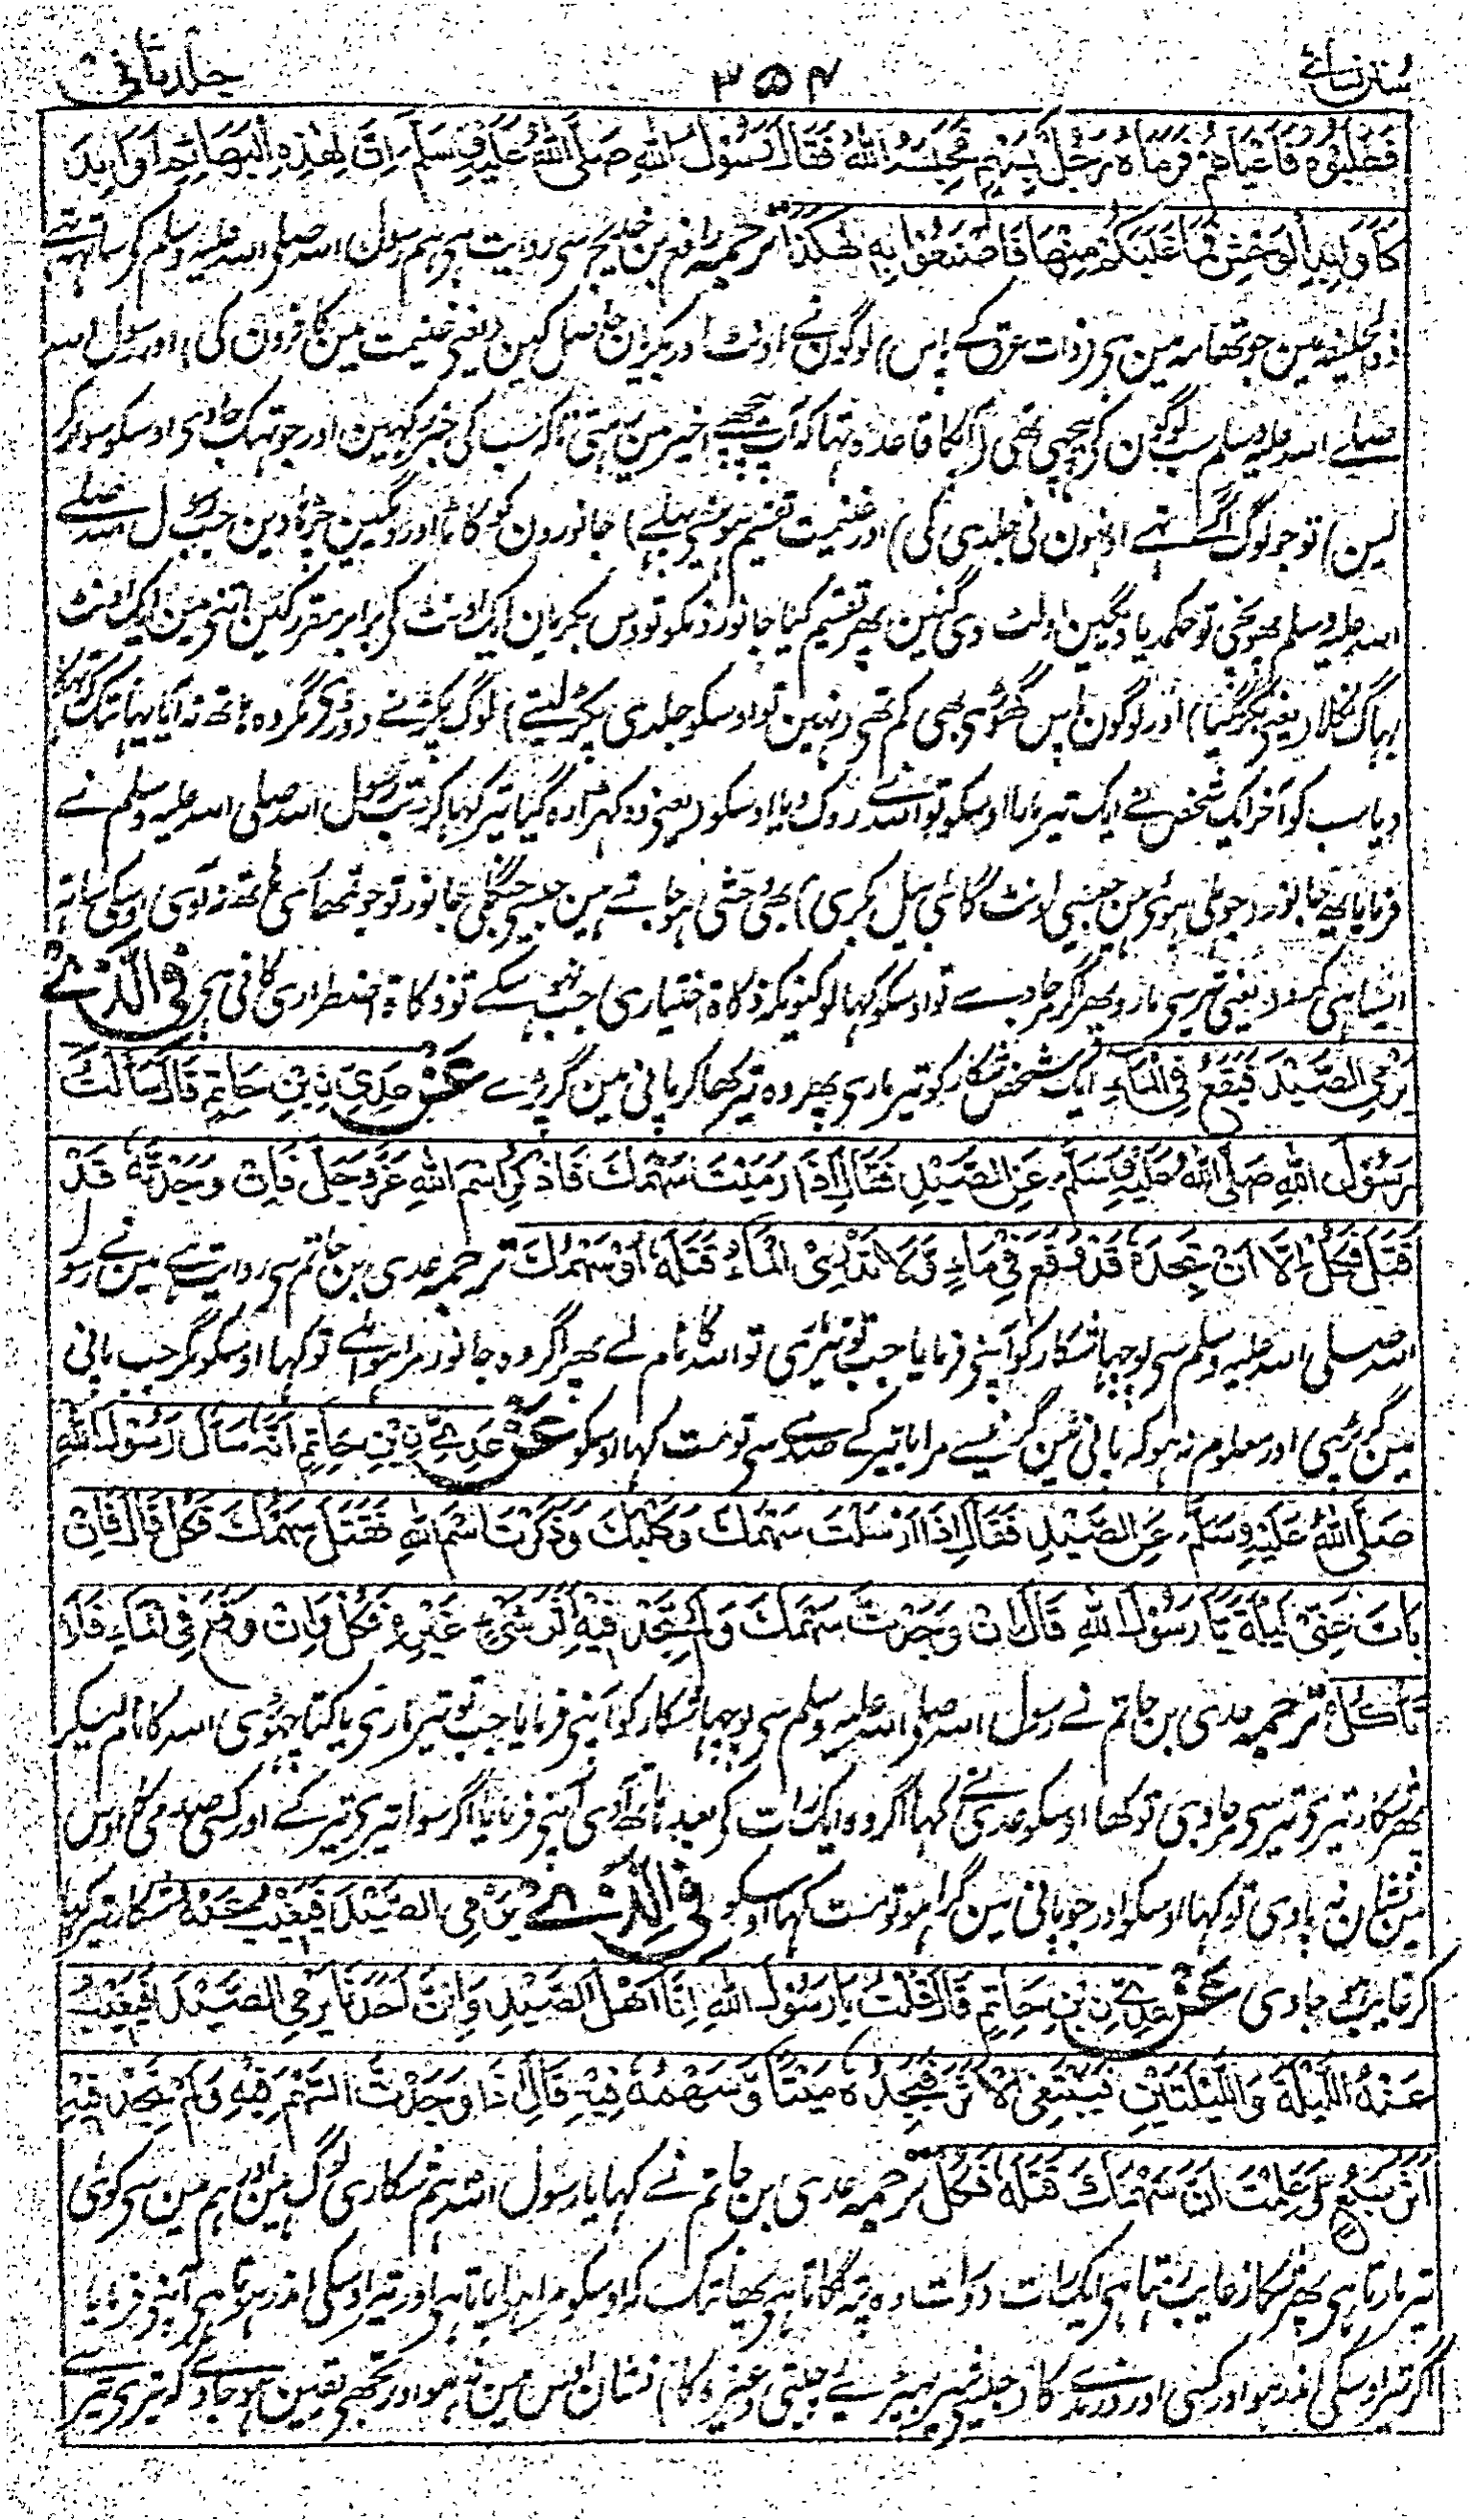 سنن نسائے ۳۵۴ جلد ثانی
فَطَلَبُوْهُ فَاَعْيَاهُمْ فَرَمَاهُ رَجُلٌ بِسَهْمٍ فَحَبَسَهُ اللّٰهُ فَقَالَ رَسُوْلُ اللّٰهِ صَلَّى اللّٰهُ عَلَيْهِ وَسَلَّمَ اِنَّ لِهٰذِهِ الْبَهَائِمِ اَوَابِدَ
كَاَوَابِدِ الْوَحْشِ فَمَا غَلَبَكُمْ مِنْهَا فَاصْنَعُوْا بِهٖ هٰكَذَا ترجمہ رافع بن خدیج سی روایت ہی ہم رسول اللہ صلی اللہ علیہ وسلم کی ساتہہ تہے
ذوالحلیفہ مین جو تھامہ مین ہی (ذات عرق کے پاس) لوگون نے اونٹ اور بکریان حاصل کین (یعنی غنیمت مین کافرون کی) اور رسول اللہ
صلے اللہ علیہ وسلم سب لوگون کی پیچھی تھی (آپکا قاعدہ تہا کہ آپ پیچھے اخیر مین رہتی تاکہ سب کی خبر رکہین اور جو تہک جاوی اوسکو سوار کر
لین) تو جو لوگ آگے تہے اونہون نی جلدی کی (اور غنیمت تقسیم ہونیسے پہلے) جانورون کو کاٹا اور دیگین چڑہا دین جب رسول اللہ صلے
اللہ علیہ وسلم پھونچی تو حکم دیا دیگین اولٹ دی گئین پھر تقسیم کیا جانورونکو تو دس بکریان ایک اونٹ کی برابر مقرر کین اتنی مین ایک اونٹ
بہاگ نکلا (یعنی بگڑ گیا) اور لوگون پاس گھوڑی بھی کم تھی (نہین تو اوسکو جلدی پکڑ لیتے) لوگ پکڑنے دوڑی مگر وہ ہاتھ نہ آیا یہانتک کہ تہکا
دیا سب کو آخر ایک شخص نے ایک تیر مارا اوسکو تو اللہ نے روک دیا اوسکو (یعنی وہ کہڑا رہ گیا تیر کہا کر) تب رسول اللہ صلی اللہ علیہ وسلم نے
فرمایا یہ جانور (جو پلی ہوئی ہین جیسی اونٹ گائی بیل بکری) بھی وحشی ہو جاتے ہین جیسی جنگلی جانور تو جو تمھارے ہاتھ نہ آوی اوسکی ساتہ
ایسا ہی کرو (یعنی تیر سی مارو پھر اگر مر جاوے تو اوسکو کہا لو کیونکہ ذکاۃ اختیاری جب نہو سکے تو ذکاۃ اضطراری کافی ہی) فِي الَّذِيْ
يَرْمِي الصَّيْدَ فَيَقَعُ فِي الْمَاءِ ایک شخص شکار کو تیر ماری پھر وہ تیر کھا کر پانی مین گر پڑے عَنْ عَدِيِّ بْنِ حَاتِمٍ قَالَ سَاَلْتُ
رَسُوْلَ اللّٰهِ صَلَّى اللّٰهُ عَلَيْهِ وَسَلَّمَ عَنِ الصَّيْدِ فَقَالَ اِذَا رَمَيْتَ سَهْمَكَ فَاذْكُرِ اسْمَ اللّٰهِ عَزَّ وَجَلَّ فَاِنْ وَجَدْتَّهٗ قَدْ
قَتَلَ فَكُلْ اِلَّا اَنْ تَجِدَهٗ قَدْ وَقَعَ فِيْ مَاءٍ وَلَا تَدْرِيْ الْمَاءُ قَتَلَهٗ اَوْ سَهْمُكَ ترجمہ عدی بن حاتم سی روایت ہے مین نے رسول
اللہ صلی اللہ علیہ وسلم سی پوچہا شکار کو آپنی فرمایا جب تو تیر مارے تو اللہ کا نام لے پھر اگر وہ جانور مرا ہوا ملے تو کہا اوسکو مگر جب پانی
مین گر پڑی اور معلوم نہ ہو کہ پانی مین گرنیسے مرا یا تیر کے صدمے سی تو مت کہا اوسکو عَنْ عَدِيِّ بْنِ حَاتِمٍ اَنَّهٗ سَاَلَ رَسُوْلَ اللّٰهِ
صَلَّى اللّٰهُ عَلَيْهِ وَسَلَّمَ عَنِ الصَّيْدِ فَقَالَ اِذَا اَرْسَلْتَ سَهْمَكَ وَكَلْبَكَ وَذَكَرْتَ اسْمَ اللّٰهِ فَقَتَلَ سَهْمُكَ فَكُلْ قَالَ فَاِنْ
بَاتَ عَنِّيْ لَيْلَةً يَا رَسُوْلَ اللّٰهِ قَالَ اِنْ وَجَدْتَ سَهْمَكَ وَلَمْ تَجِدْ فِيْهِ اَثَرَ شَيْءٍ غَيْرِهٖ فَكُلْ وَاِنْ وَقَعَ فِي الْمَاءِ فَلَا
تَاْكُلْ ترجمہ عدی بن حاتم نے رسول اللہ صلی اللہ علیہ وسلم سی پوچہا شکار کو آپنی فرمایا جب تو تیر ماری یا کتا چھوڑی اللہ کا نام لیکر
پھر شکار تیری تیر سی مر جاوی تو کھا اوسکو عدی نے کہا اگر وہ ایک رات کی بعد ہاتھ آوی آپنی فرمایا اگر سوا تیری تیر کے اور کسی صدمی کا اوس
مین نشان نہ پاوی تو کہا اوسکو اور جو پانی مین گرا ہو تو مت کہا اوسکو فِي الَّذِيْ يَرْمِي الصَّيْدَ فَيَغِيْبُ عَنْهُ شکار تیر کہا
کر غایب ہو جاوی عَنْ عَدِيِّ بْنِ حَاتِمٍ قَالَ قُلْتُ يَا رَسُوْلَ اللّٰهِ اِنَّا اَهْلُ الصَّيْدِ وَاِنَّ اَحَدَنَا يَرْمِي الصَّيْدَ فَيَغِيْبُ
عَنْهُ اللَّيْلَةَ وَاللَّيْلَتَيْنِ فَيَبْتَغِي الْاَثَرَ فَيَجِدُهٗ مَيْتًا وَّسَهْمُهٗ فِيْهِ قَالَ اِذَا وَجَدْتَ السَّهْمَ فِيْهِ وَلَمْ تَجِدْ فِيْهِ
اَثَرَ سَبُعٍ وَعَلِمْتَ اَنَّ سَهْمَكَ قَتَلَهٗ فَكُلْ ترجمہ عدی بن حاتم نے کہا یا رسول اللہ ہم شکاری لوگ ہین اور ہم مین سی کوئی
تیر مارتا ہی پھر شکار غایب رہتا ہی ایک رات دو رات وہ پتہ لگاتا ہی یہانتک کہ اوسکو مرا ہوا پاتا ہی اور تیر اوسکی اندر ہوتا ہی آپنی فرمایا
اگر تیر اوسکی اندر ہو اور کسی اور درندے کا (جیسے شیر بھیڑیے چیتی وغیرہ کا) نشان اس مین نہ ہو اور تجھی یقین ہو جاوے کہ تیری تیر سے